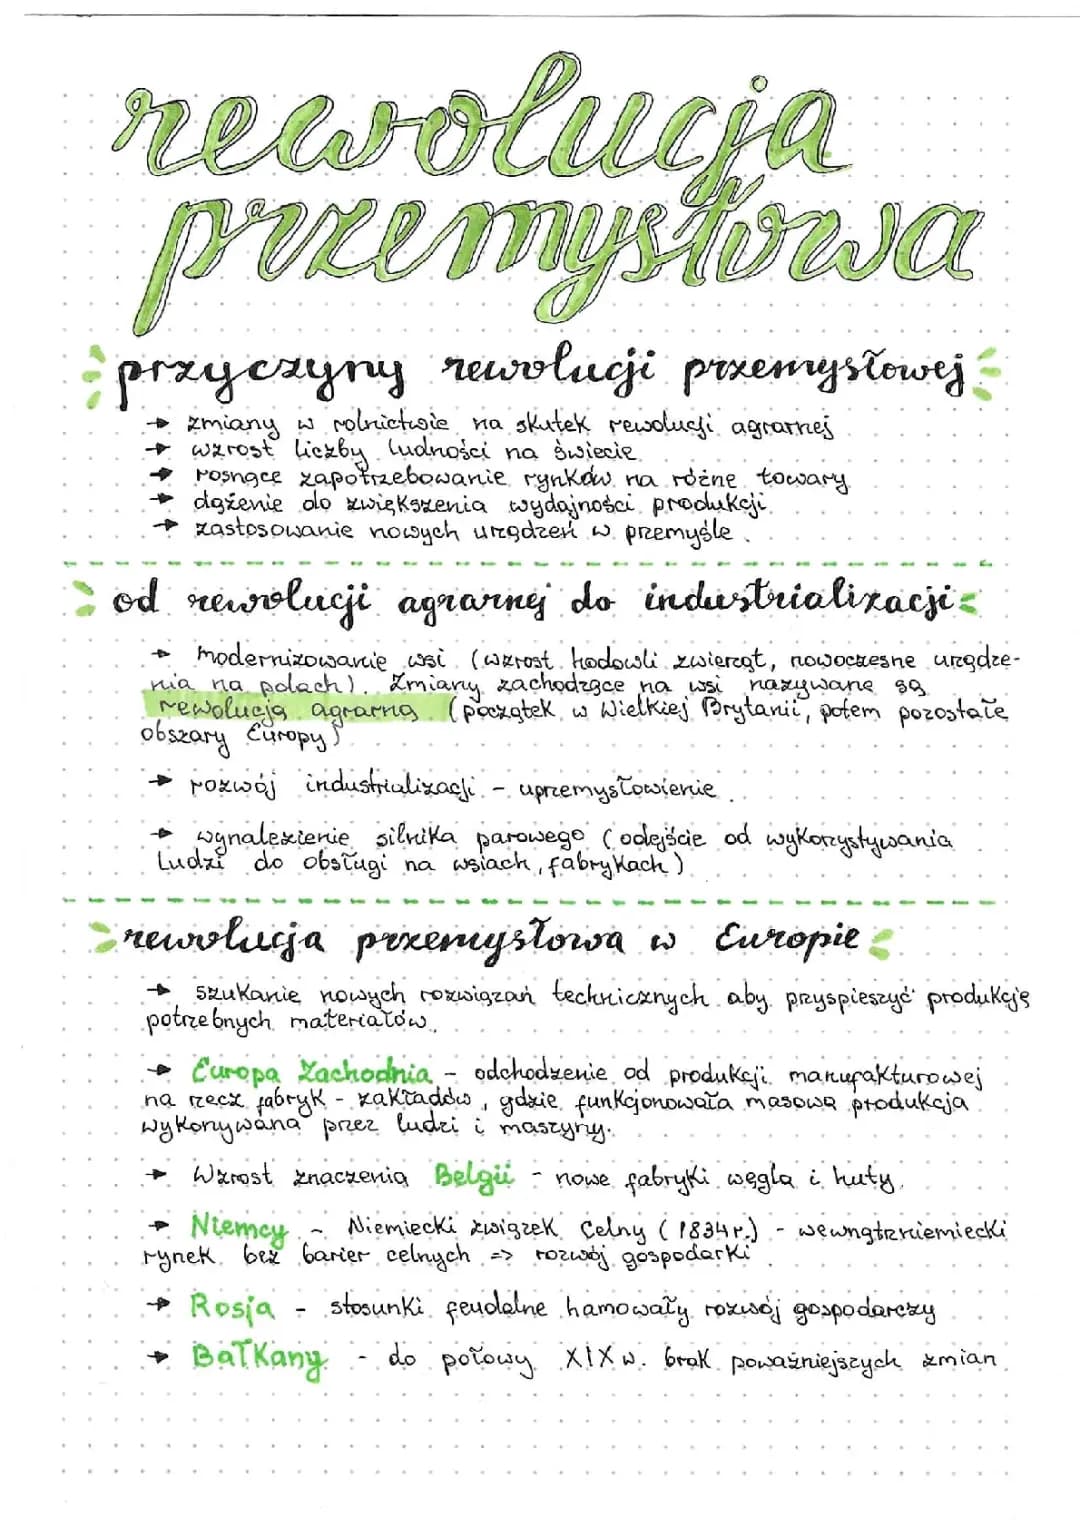 rewolucja
przemysłowa
przyczyny rewolucji przemysłowej
→ zmiany w rolnictwie na skutek rewolucji agrarnej
→ wzrost liczby ludności na świecie
→ rosnące zapotrzebowanie rynków na różne towary
→ dążenie do zwiększenia wydajności produkcji
→ zastosowanie nowych urządzeń w przemyśle.
od rewolucji agrarnej do industrializacji
→ modernizowanie wsi (wzrost hodowli zwierząt, nowoczesne urządze-
nia na polach). Zmiany zachodzące na wsi nazywane są
rewolucją agrarną (początek w Wielkiej Brytanii, potem pozostałe
obszary Europy)
→ rozwój industrializacji - uprzemysłowienie.
→ wynalezienie silnika parowego (odejście od wykorzystywania
ludzi do obsługi na wsiach, fabrykach)
rewolucja przemysłowa w Europie
→ szukanie nowych rozwiązań technicznych aby przyspieszyć produkcję
potrzebnych materiałów.
→ Europa Zachodnia - odchodzenie od produkcji manufakturowej
na rzecz fabryk - zakładów, gdzie funkcjonowała masowa produkcja
wykonywana przez ludzi i maszyny.
→ Wzrost znaczenia Belgii - nowe fabryki węgla i huty.
→ Niemcy - Niemiecki związek Celny (1834r.) - wewnątrzniemiecki
rynek bez barier celnych => rozwój gospodarki
→ Rosja - stosunki feudalne hamowały rozwój gospodarczy
→ Bałkany - do połowy XIX w. brak poważniejszych zmian